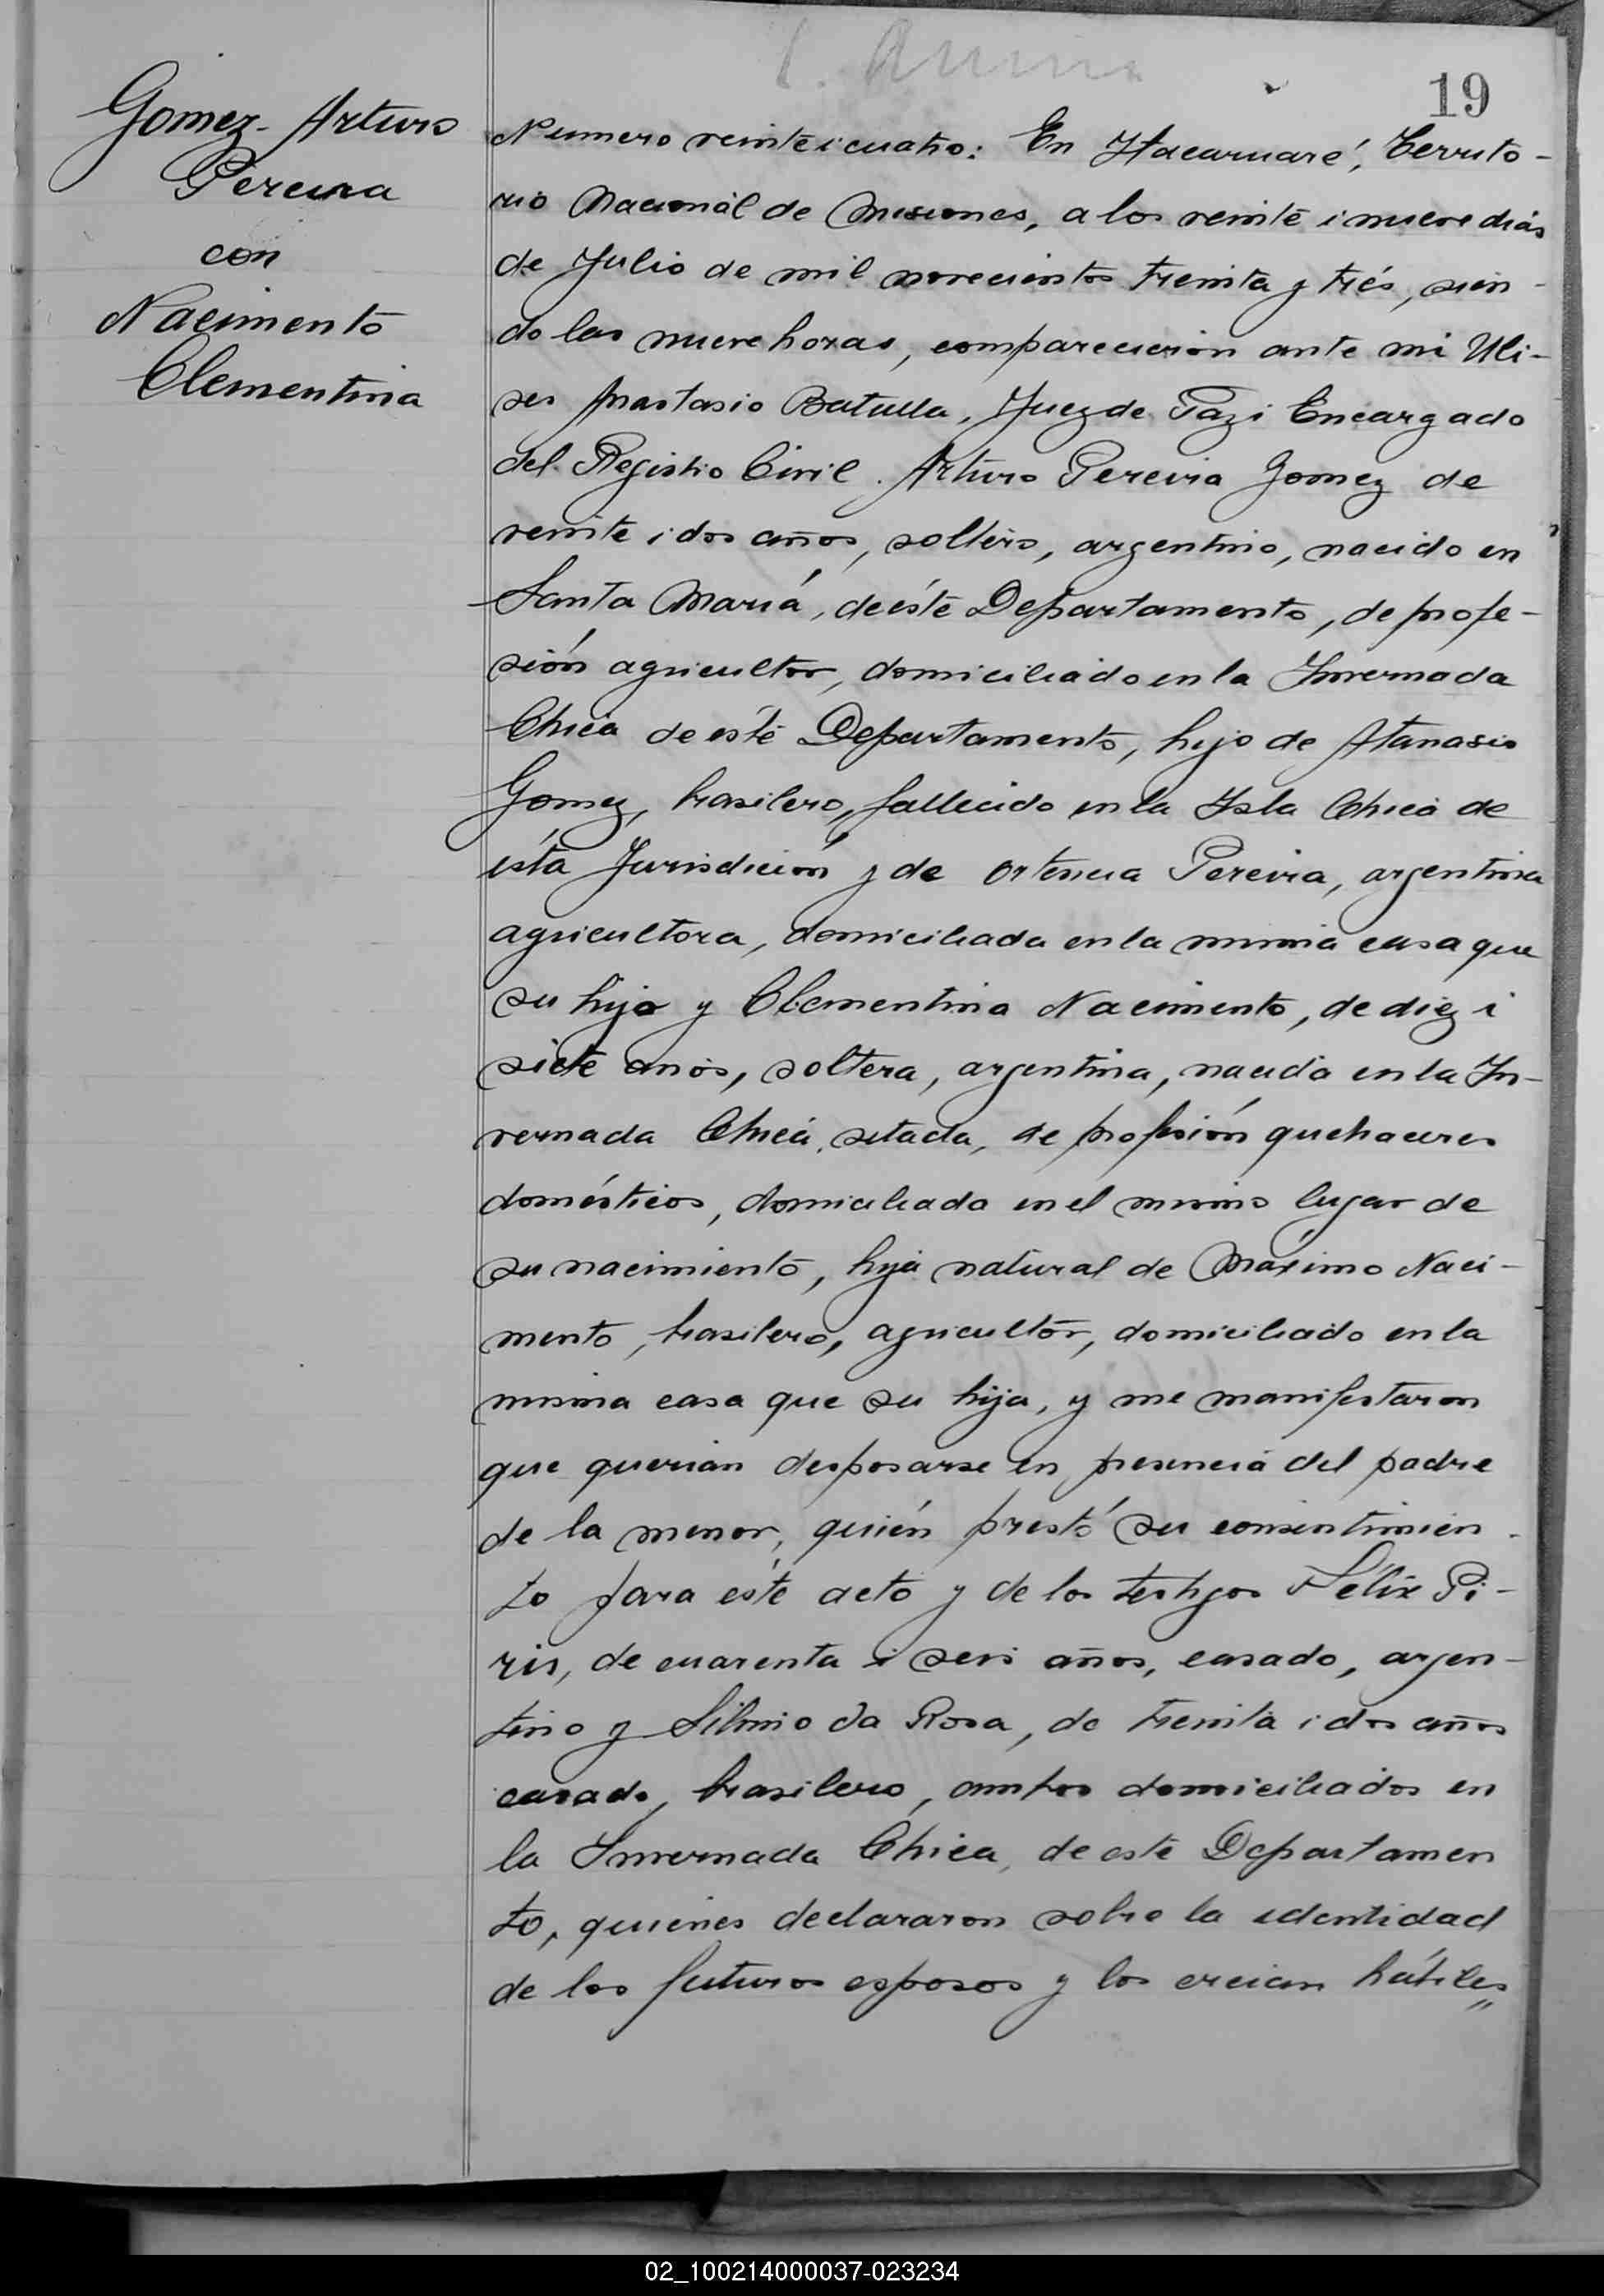 19
Gomez - Arturo
Pereira
con
Nacimento
Clementina
Numero veinteicuatro: En Itacaruaré, Territo-
rio Nacional de Misiones, a los veinte i nueve dias
de Julio de mil novecientos treinta y trés, sien-
do las nueve horas, comparecieron ante mi Uli-
ses Anastasio Batulla, Juez de Paz i Encargado
del Registro Civil. Arturo Pereira Gomez de
veinte i dos años, soltero, argentino, nacido en
Santa María, de éste Departamento, de profe-
sión agricultor, domiciliado en la Invernada
Chica de éste Departamento, hijo de Atanasio
Gomez, brasilero, fallecido en la Isla Chica de
ésta Jurisdicion y de Ortencia Pereira, argentina
agricultora, domiciliada en la misma casa que
su hijo y Clementina Nacimento, de diez i
siete años, soltera, argentina, nacida en la In-
vernada Chica, sitada, de profesión quehaceres
domésticos, domiciliada en el mismo lugar de
su nacimiento, hija natural de Máximo Naci-
mento, brasilero, agricultor, domiciliado en la
misma casa que su hija, y me manifestaron
que querian desposarse en presencia del padre
de la menor, quién prestó su consentimien-
to para éste acto y de los testigos Félix Pi-
ris, de cuarenta i seis años, casado, argen-
tino y Silvino da Rosa, de treinta i dos años
casado, brasilero, ambos domiciliados en
la Invernada Chica, de este Departamen
to, quienes declararon sobre la identidad
de los futuros esposos y los creian hábiles
02_100214000037-023234